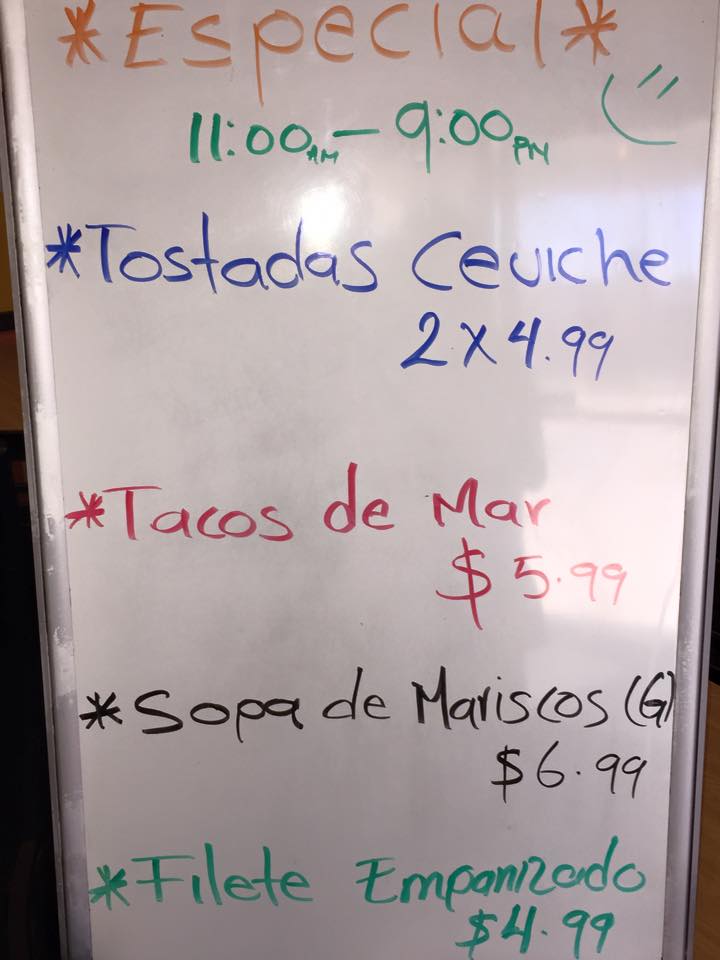 *Especial*
11:00AM - 9:00PM
*Tostadas Ceviche
2 x 4.99
*Tacos de Mar
$5.99
*Sopa de Mariscos (G)
$6.99
*Filete Empanizado
$4.99